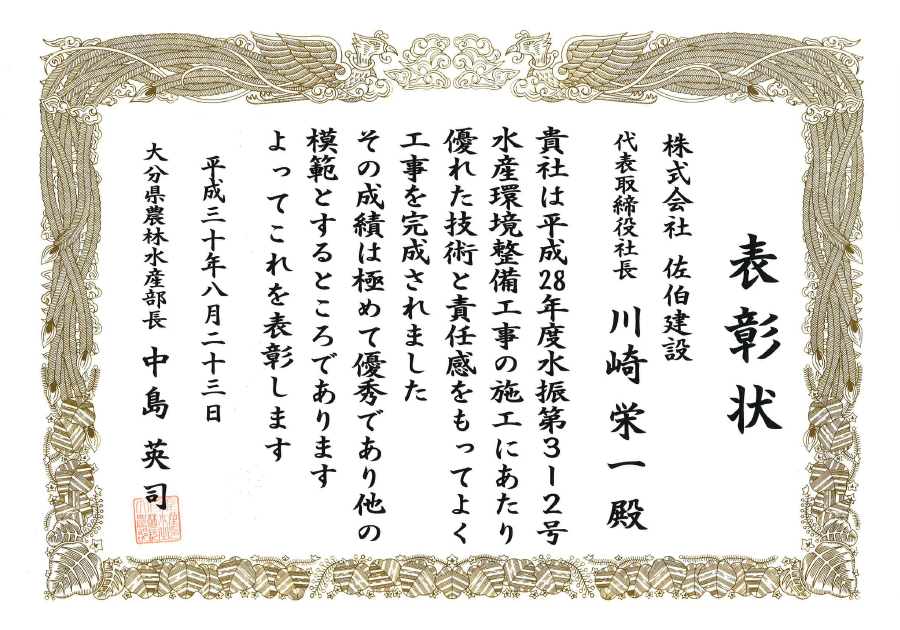 表彰状
株式会社 佐伯建設
代表取締役社長 川崎 栄一 殿
貴社は平成28年度水振第3ー2号
水産環境整備工事の施工にあたり
優れた技術と責任感をもってよく
工事を完成されました
その成績は極めて優秀であり他の
模範とするところであります
よってこれを表彰します
平成三十年八月二十三日
大分県農林水産部長 中島 英司